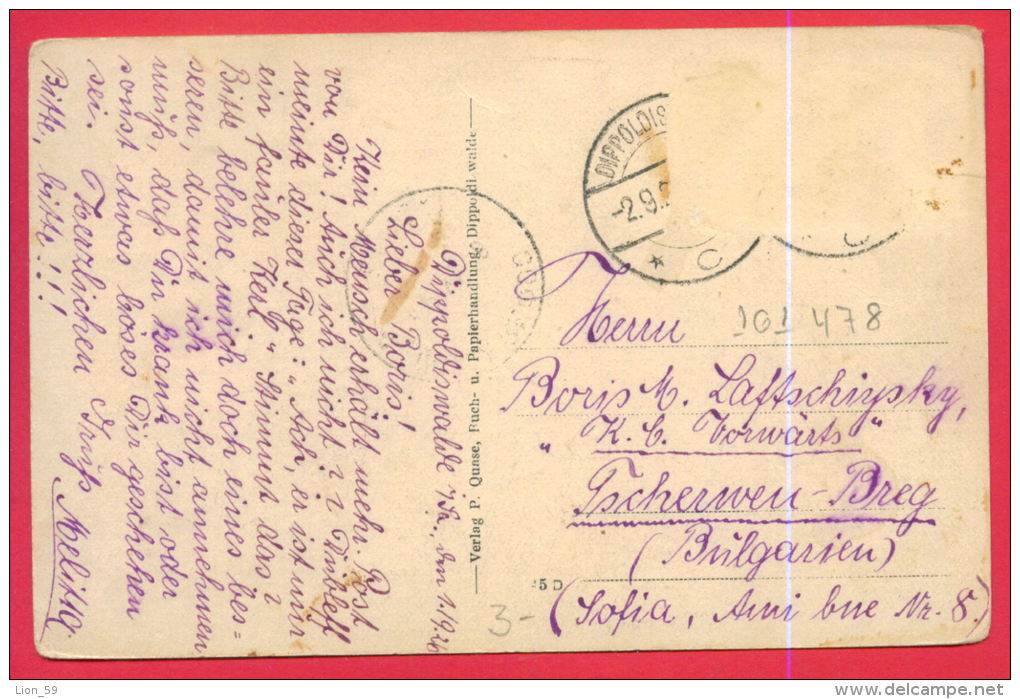 Dippoldiswalde i/Sa., den 1./9.26
Lieber Boris!
Kein Mensch erhält mehr Post
von Dir! Auch ich nicht??
meinte dieser Tage: „Ach, er ist nur
ein fauler Kerl." Stimmt das?
Bitte belehre mich doch eines bes=
seren, damit ich nicht annehmen
muß, daß Du krank bist oder
sonst etwas böses Dir geschehen
sei. Herzlichen Gruß
Bitte, bitte!!! Melitta.
Verlag P. Quase, Buch- u. Papierhandlung, Dippoldiswalde
DIPPOLDIS
-2.9.2
* C
Herrn
Boris M. Laftschiysky,
„K. C. Vorwärts"
Tscherwen-Breg
(Bulgarien)
(Sofia, Ami bue Nr. 8.)
101478
45 D
3-
Lion_59
delcampe.net